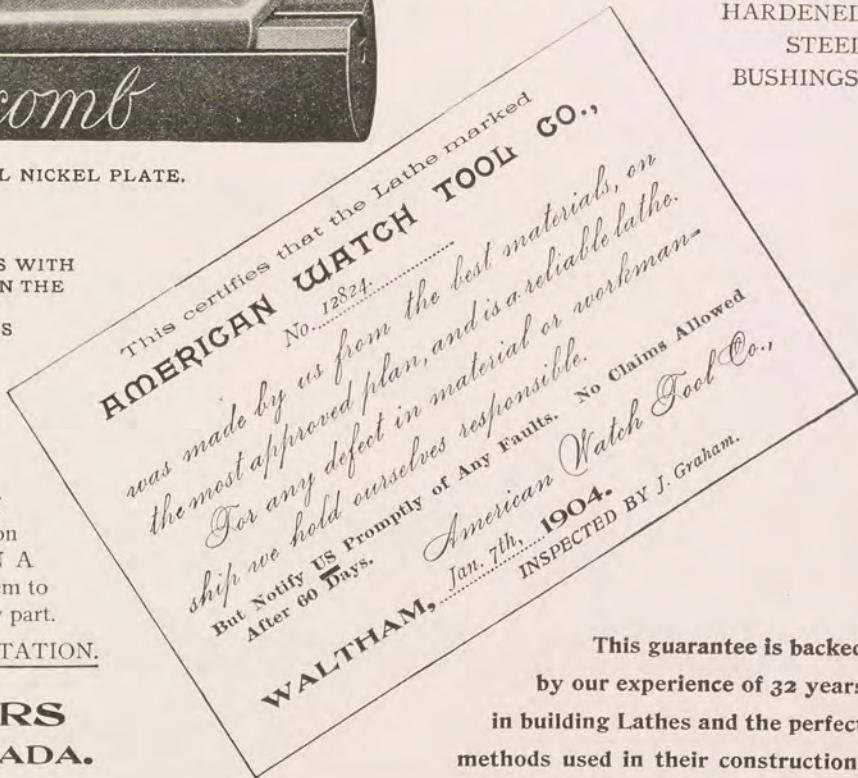 HARDENED
STEEL
BUSHINGS
comb
L NICKEL PLATE.
S WITH
N THE
S
on
N A
em to
part.
TATION.
RS
ADA.
This certifies that the Lathe marked
AMERICAN WATCH TOOL CO.,
No. 12824.
was made by us from the best materials, on
the most approved plan, and is a reliable lathe.
For any defect in material or workman-
ship we hold ourselves responsible.
But Notify US Promptly of Any Faults. No Claims Allowed
After 60 Days.
American Watch Tool Co.,
WALTHAM, Jan. 7th, 1904.
INSPECTED BY J. Graham.
This guarantee is backed
by our experience of 32 years
in building Lathes and the perfect
methods used in their construction